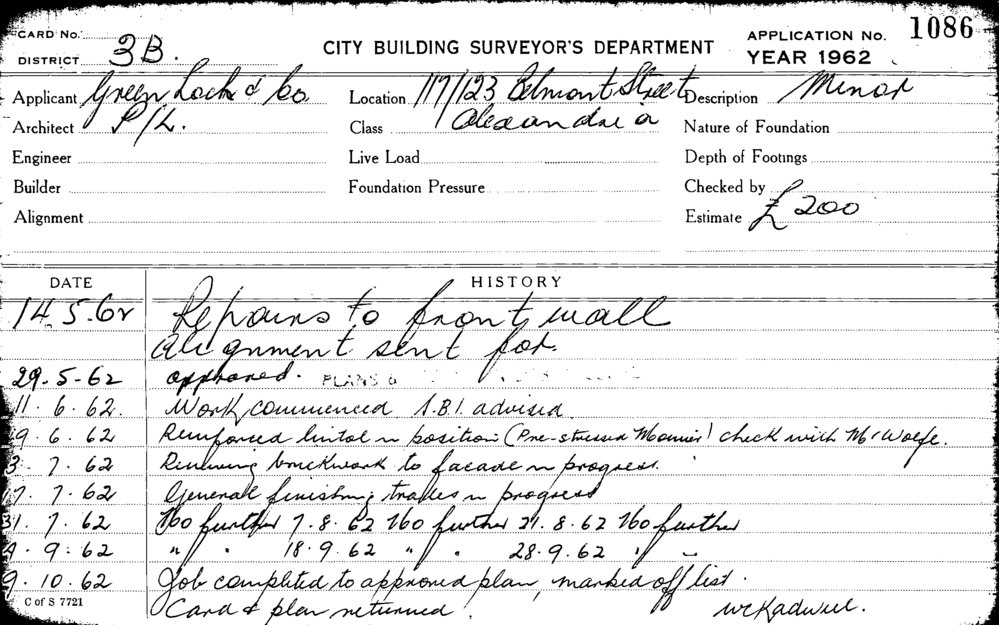 CARD No.
DISTRICT 3B.
CITY BUILDING SURVEYOR'S DEPARTMENT
APPLICATION No. 1086
YEAR 1962
Applicant Green Loch & Co Location 117/123 Belmont Street Description Minor
Architect P/L. Class Alexandria Nature of Foundation
Engineer Live Load Depth of Footings
Builder Foundation Pressure Checked by
Alignment Estimate £200
DATE HISTORY
14.5.62 Repairs to front wall
Alignment sent for.
29.5.62 approved. PLANS
11.6.62. Work commenced A.B.I. advised
9.6.62 Reinforced lintol in position (Pre-stressed Monier) check with Mr Wolfe.
3.7.62 Renewing brickwork to facade in progress.
17.7.62 General finishing trades in progress
31.7.62 No further 7.8.62 No further 21.8.62 No further
4.9.62 " " 18.9.62 " " 28.9.62 " "
9.10.62 Job completed to approved plan, marked off list.
C of S 7721 Card & plan returned.